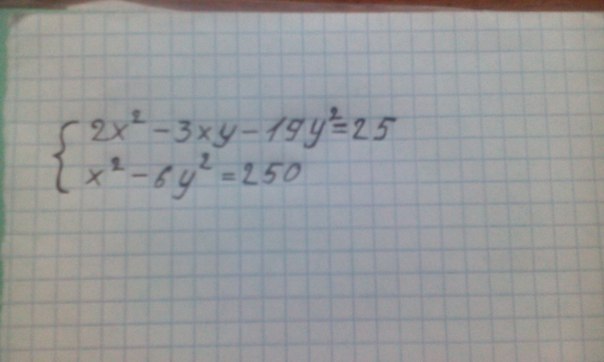 2x² - 3xy - 19y² = 25
x² - 6y² = 250